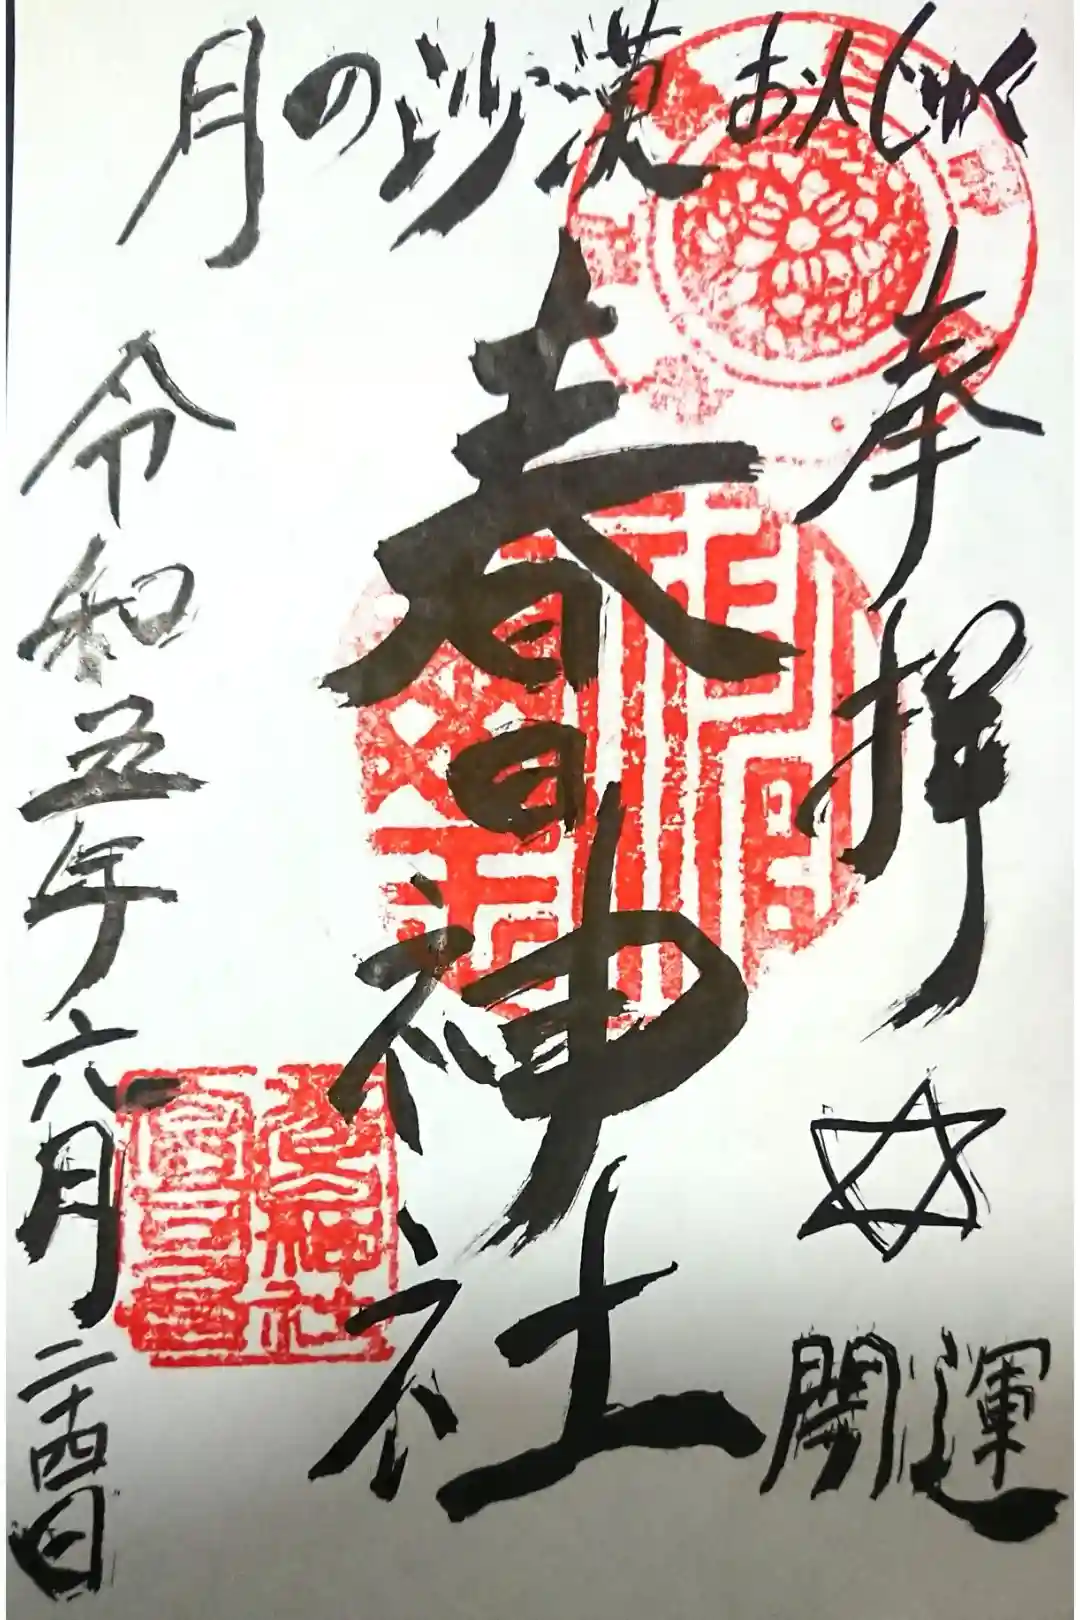 月の沙漠 おんじゅく
奉拝
開運
春日神社
令和五年六月二十四日